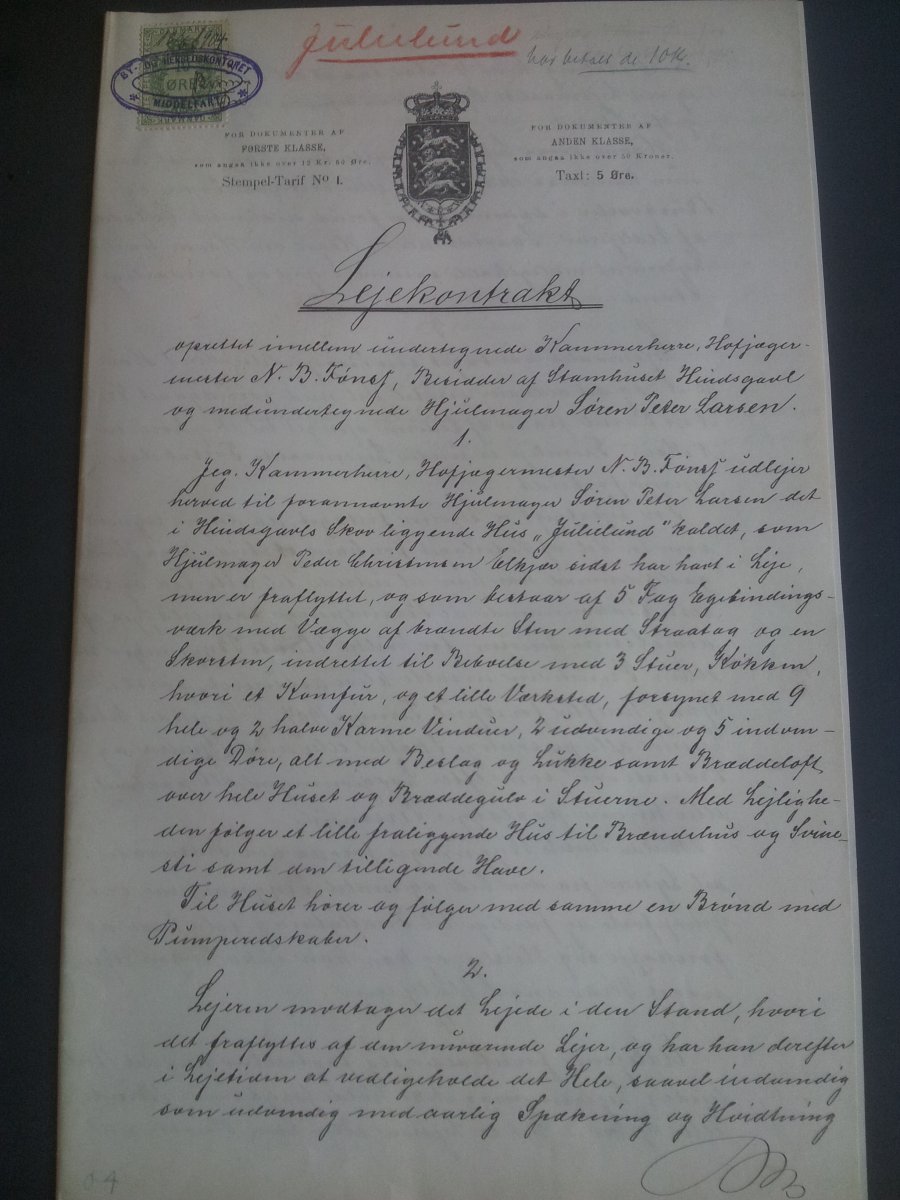 Julielund
har betalt de 10 K.
BY- OG HERREDSKONTORET
MIDDELFART
DANMARK
ØRE
FOR DOKUMENTER AF
FØRSTE KLASSE,
som angaa ikke over 12 Kr. 50 Øre.
Stempel-Tarif No 1.
FOR DOKUMENTER AF
ANDEN KLASSE,
som angaa ikke over 50 Kroner.
Taxt: 5 Øre.
Lejekontrakt
oprettet imellem undertegnede Kammerherre, Hofjæger-
mester N. B. Fønss, Besidder af Stamhuset Hindsgavl
og medundertegnede Hjulmager Søren Peter Larsen.
1.
Jeg, Kammerherre, Hofjægermester N. B. Fønss udlejer
herved til forannævnte Hjulmager Søren Peter Larsen det
i Hindsgavls Skov liggende Hus „Julielund" kaldet, som
Hjulmager Peder Christensen Elkjær sidst har havt i Leje,
men er fraflyttet, og som bestaar af 5 Fag Egebindings-
værk med Vægge af brændte Sten med Straatag og en
Skorsten, indrettet til Beboelse med 3 Stuer, Køkken,
hvori et Komfur, og et lille Værksted, forsynet med 9
hele og 2 halve Karme Vinduer, 2 udvendige og 5 indven-
dige Døre, alt med Beslag og Lukke samt Bræddeloft
over hele Huset og Bræddegulv i Stuerne. Med Lejlighe-
den følger et lille fraliggende Hus til Brændehus og Svine-
sti samt den tilligende Have.
Til Huset hører og følger med samme en Brønd med
Pumperedskaber.
2.
Lejeren modtager det Lejede i den Stand, hvori
det fraflyttes af den nuværende Lejer, og har han derefter
i Lejetiden at vedligeholde det Hele, saavel indvendig
som udvendig med aarlig Spækning og Hvidtning